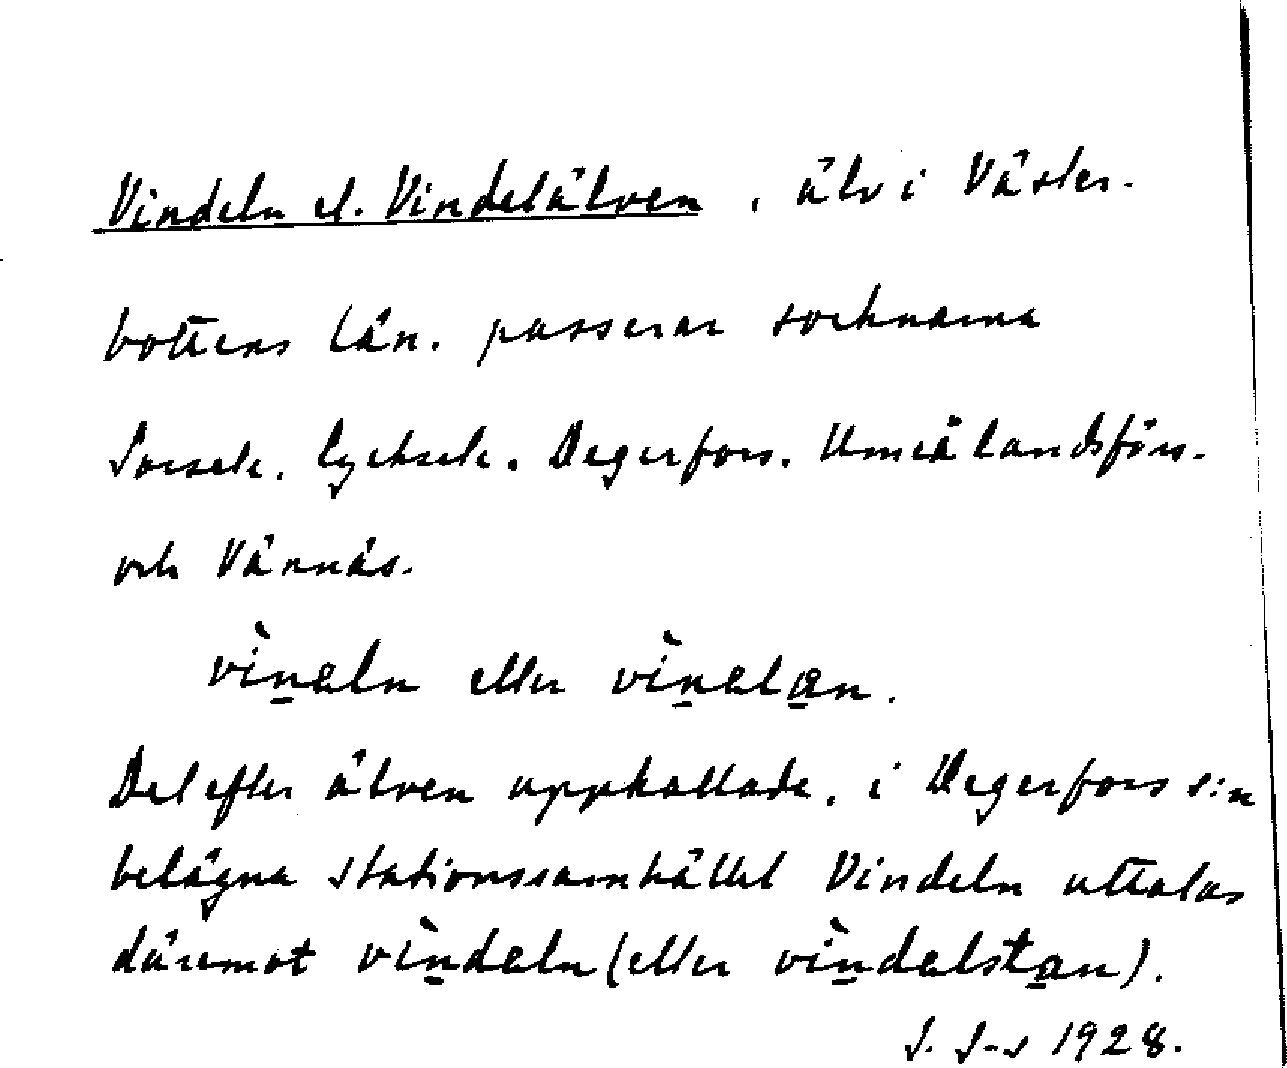 Vindeln el. Vindelälven, älv i Väster-
bottens län, passerar socknarna
Sorsele, Lycksele, Degerfors, Umeå landsförs.
och Vännäs.
vìn̲əln eller vìn̲əla̲n.
Det efter älven uppkallade, i Degerfors s:n
belägna stationssamhället Vindeln uttalas
däremot vìn̲dəln (eller vìn̲dəlsta̲n).
J. J-s 1928.